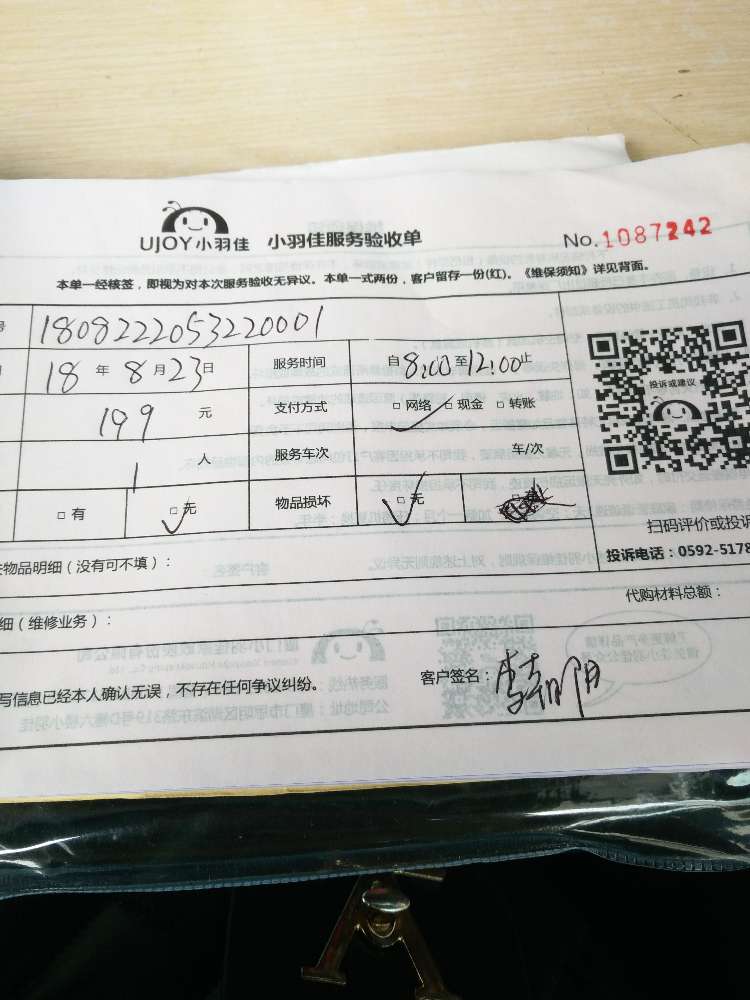 UJOY小羽佳 小羽佳服务验收单 No.1087242
本单一经核签，即视为对本次服务验收无异议。本单一式两份，客户留存一份(红)。《维保须知》详见背面。
号 1808222053220001
18 年 8 月 23 日 服务时间 自8:00至12:00止
199 元 支付方式 □ 网络 □ 现金 □ 转账
1 人 服务车次 车/次
□ 有 □ 无 物品损坏 □ 无
投诉或建议
扫码评价或投诉
物品明细（没有可不填）： 投诉电话：0592-5178
细（维修业务）： 代购材料总额：
写信息已经本人确认无误，不存在任何争议纠纷。 客户签名：